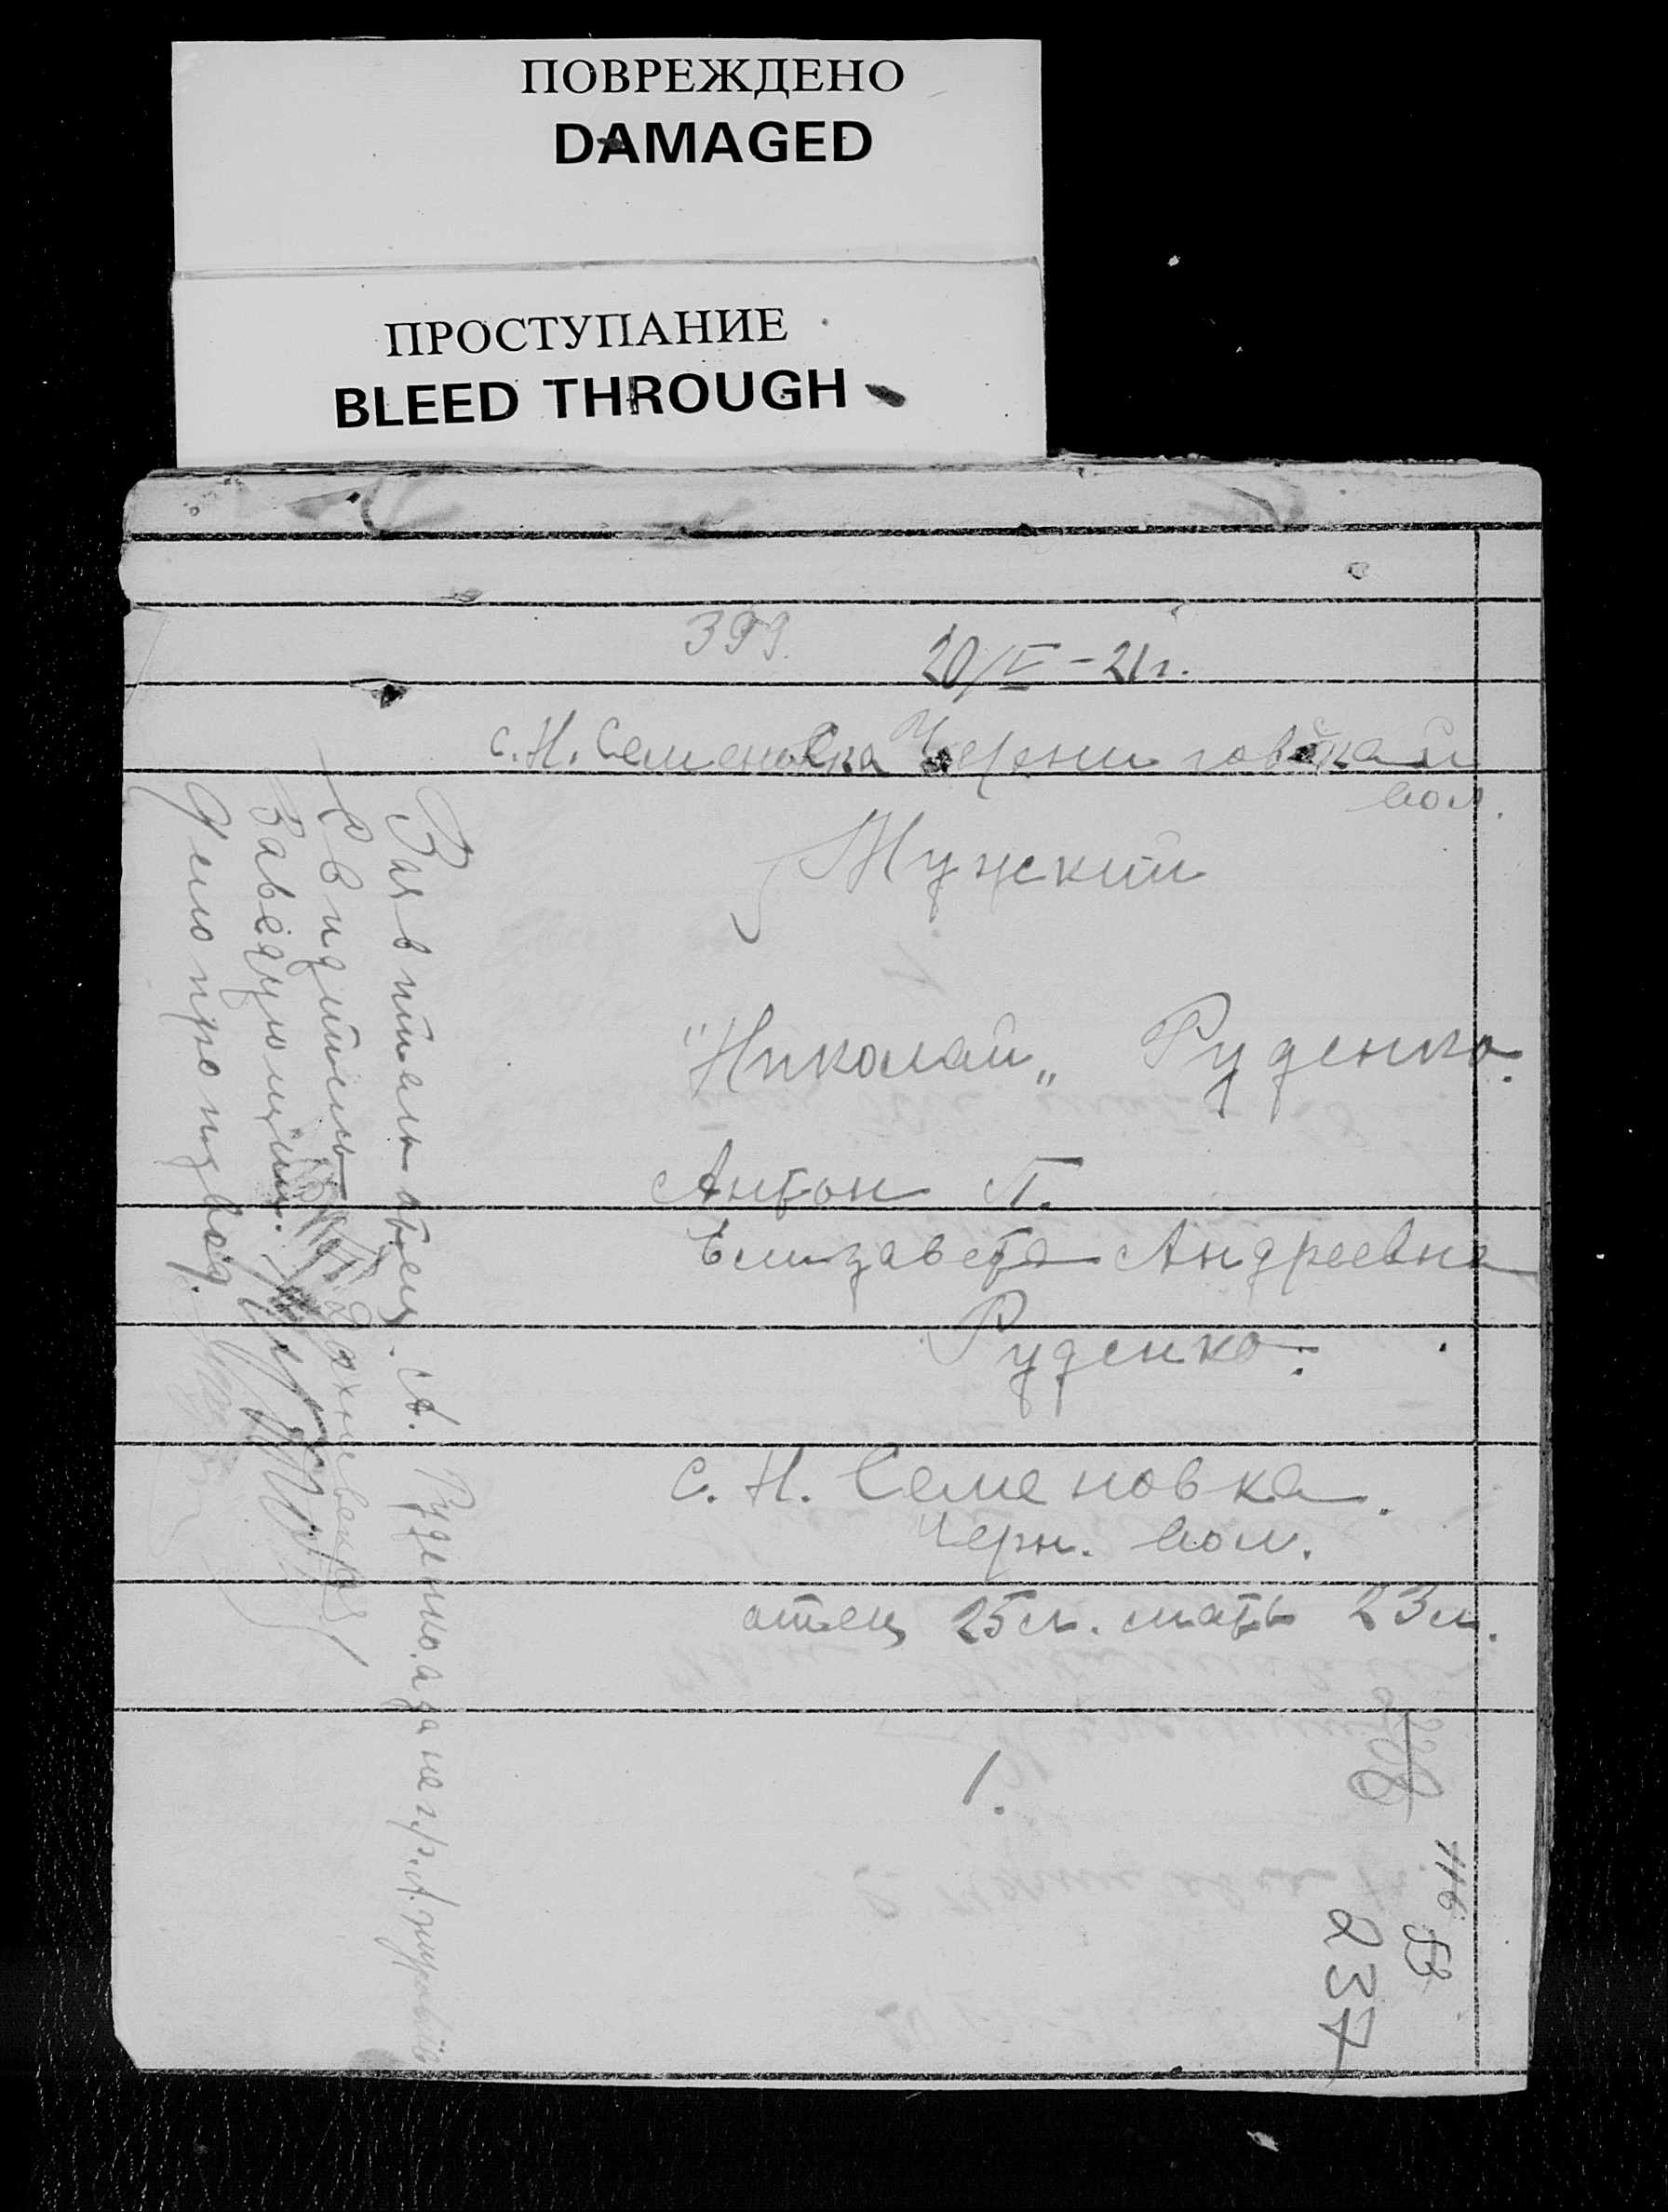 ПОВРЕЖДЕНО
DAMAGED
ПРОСТУПАНИЕ
BLEED THROUGH
399.
20/V – 21 г.
с. Н. Семеновка Черниговской
вол.
Мужский
"Николай„ Руденко.
Антон П.
Елизавета Андреевна
Руденко.
с. Н. Семеновка.
Черн. вол.
отец 25 л. мать 23 л.
1.
237
отец. А. Руденко. а за негр.
Свидетель
Заведующий.
Делопроизвод.